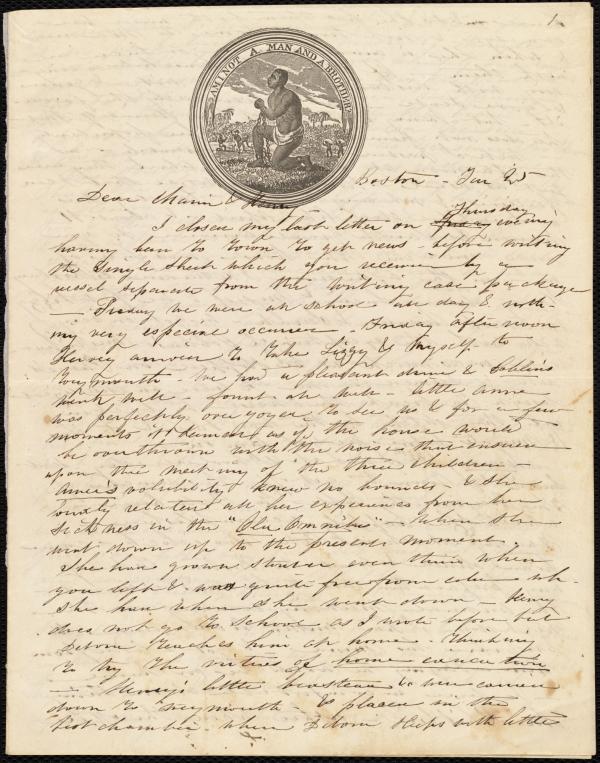 1
AM I NOT A MAN AND A BROTHER?
Boston - Jan 25
Dear Maria &
Thursday
I closed my last letter on Friday evening
having been to town to get news - before writing
the single sheet which you received by a
vessel separate from the writing case package
- Friday we were at school all day & noth-
ing very especial occurred. Friday afternoon
Hervey arrived to take Lizzy & myself to
Weymouth - We had a pleasant drive &
went well - found all well - little Anne
was perfectly overjoyed to see us & for a few
moments it seemed as if the house would
be overthrown with the noise that ensued
upon the meeting of the three children -
volubility knew no bounds - & she
related all her experiences from her
sickness in the "Old Omnibus" - when she
went down up to the present moment.
She has grown stouter even than when
you left & was quite free from cold wh.
she had when she went down - Henry
does not go to school as I wrote before but
Debora teaches him at home - thinking
to try the virtues of home education
- Henry's little bedstead is carried
down to Weymouth - & placed in the
chamber where Debora sleeps with little